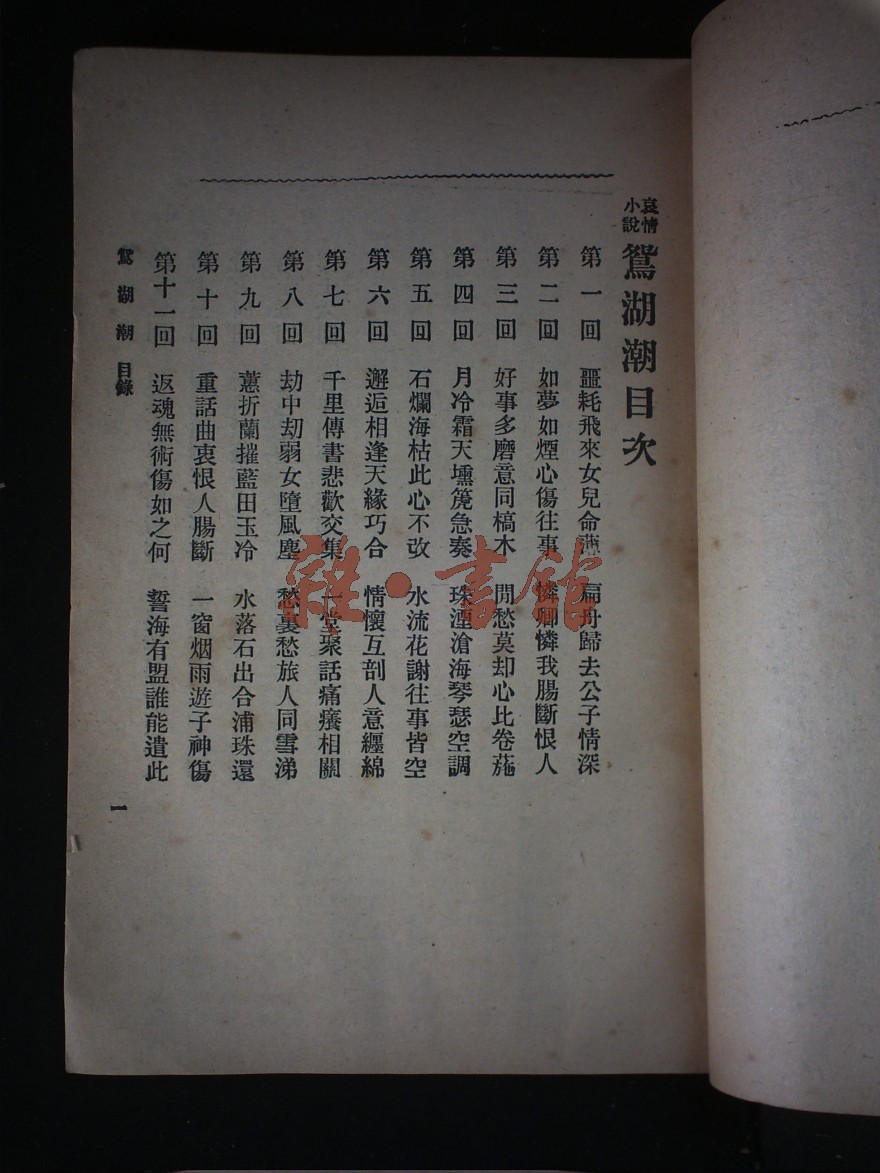 哀情小說 鴛湖潮目次
第一回 噩耗飛來女兒命薄 扁舟歸去公子情深
第二回 如夢如煙心傷往事 憐卿憐我腸斷恨人
第三回 好事多磨意同槁木 閒愁莫却心比卷葹
第四回 月冷霜天壎箎急奏 珠湮滄海琴瑟空調
第五回 石爛海枯此心不改 水流花謝往事皆空
第六回 邂逅相逢天緣巧合 情懷互剖人意纏綿
第七回 千里傳書悲歡交集 一堂聚話痛癢相關
第八回 劫中刧弱女墮風塵 愁裏愁旅人同雪涕
第九回 蕙折蘭摧藍田玉冷 水落石出合浦珠還
第十回 重話曲衷恨人腸斷 一窗烟雨遊子神傷
第十一回 返魂無術傷如之何 誓海有盟誰能遣此
鴛湖潮 目錄
一
雜·書館